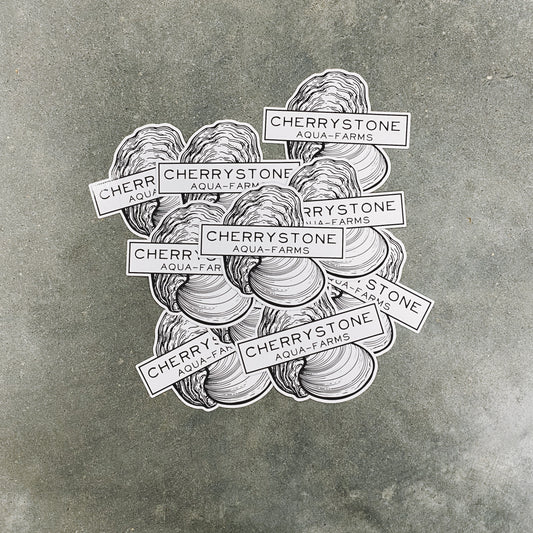 CHERRYSTONE
AQUA-FARMS
CHERRYSTONE
AQUA-FARMS
CHERRY
AQUA-F
CHERRYSTONE
AQUA-FARMS
CHERRYSTONE
AQUA-FARMS
CHERRY
AQUA-FA
CHERRYSTONE
AQUA-FARMS
CHERRYSTONE
AQUA-FARMS
CHERRYSTO
AQUA-FARMS